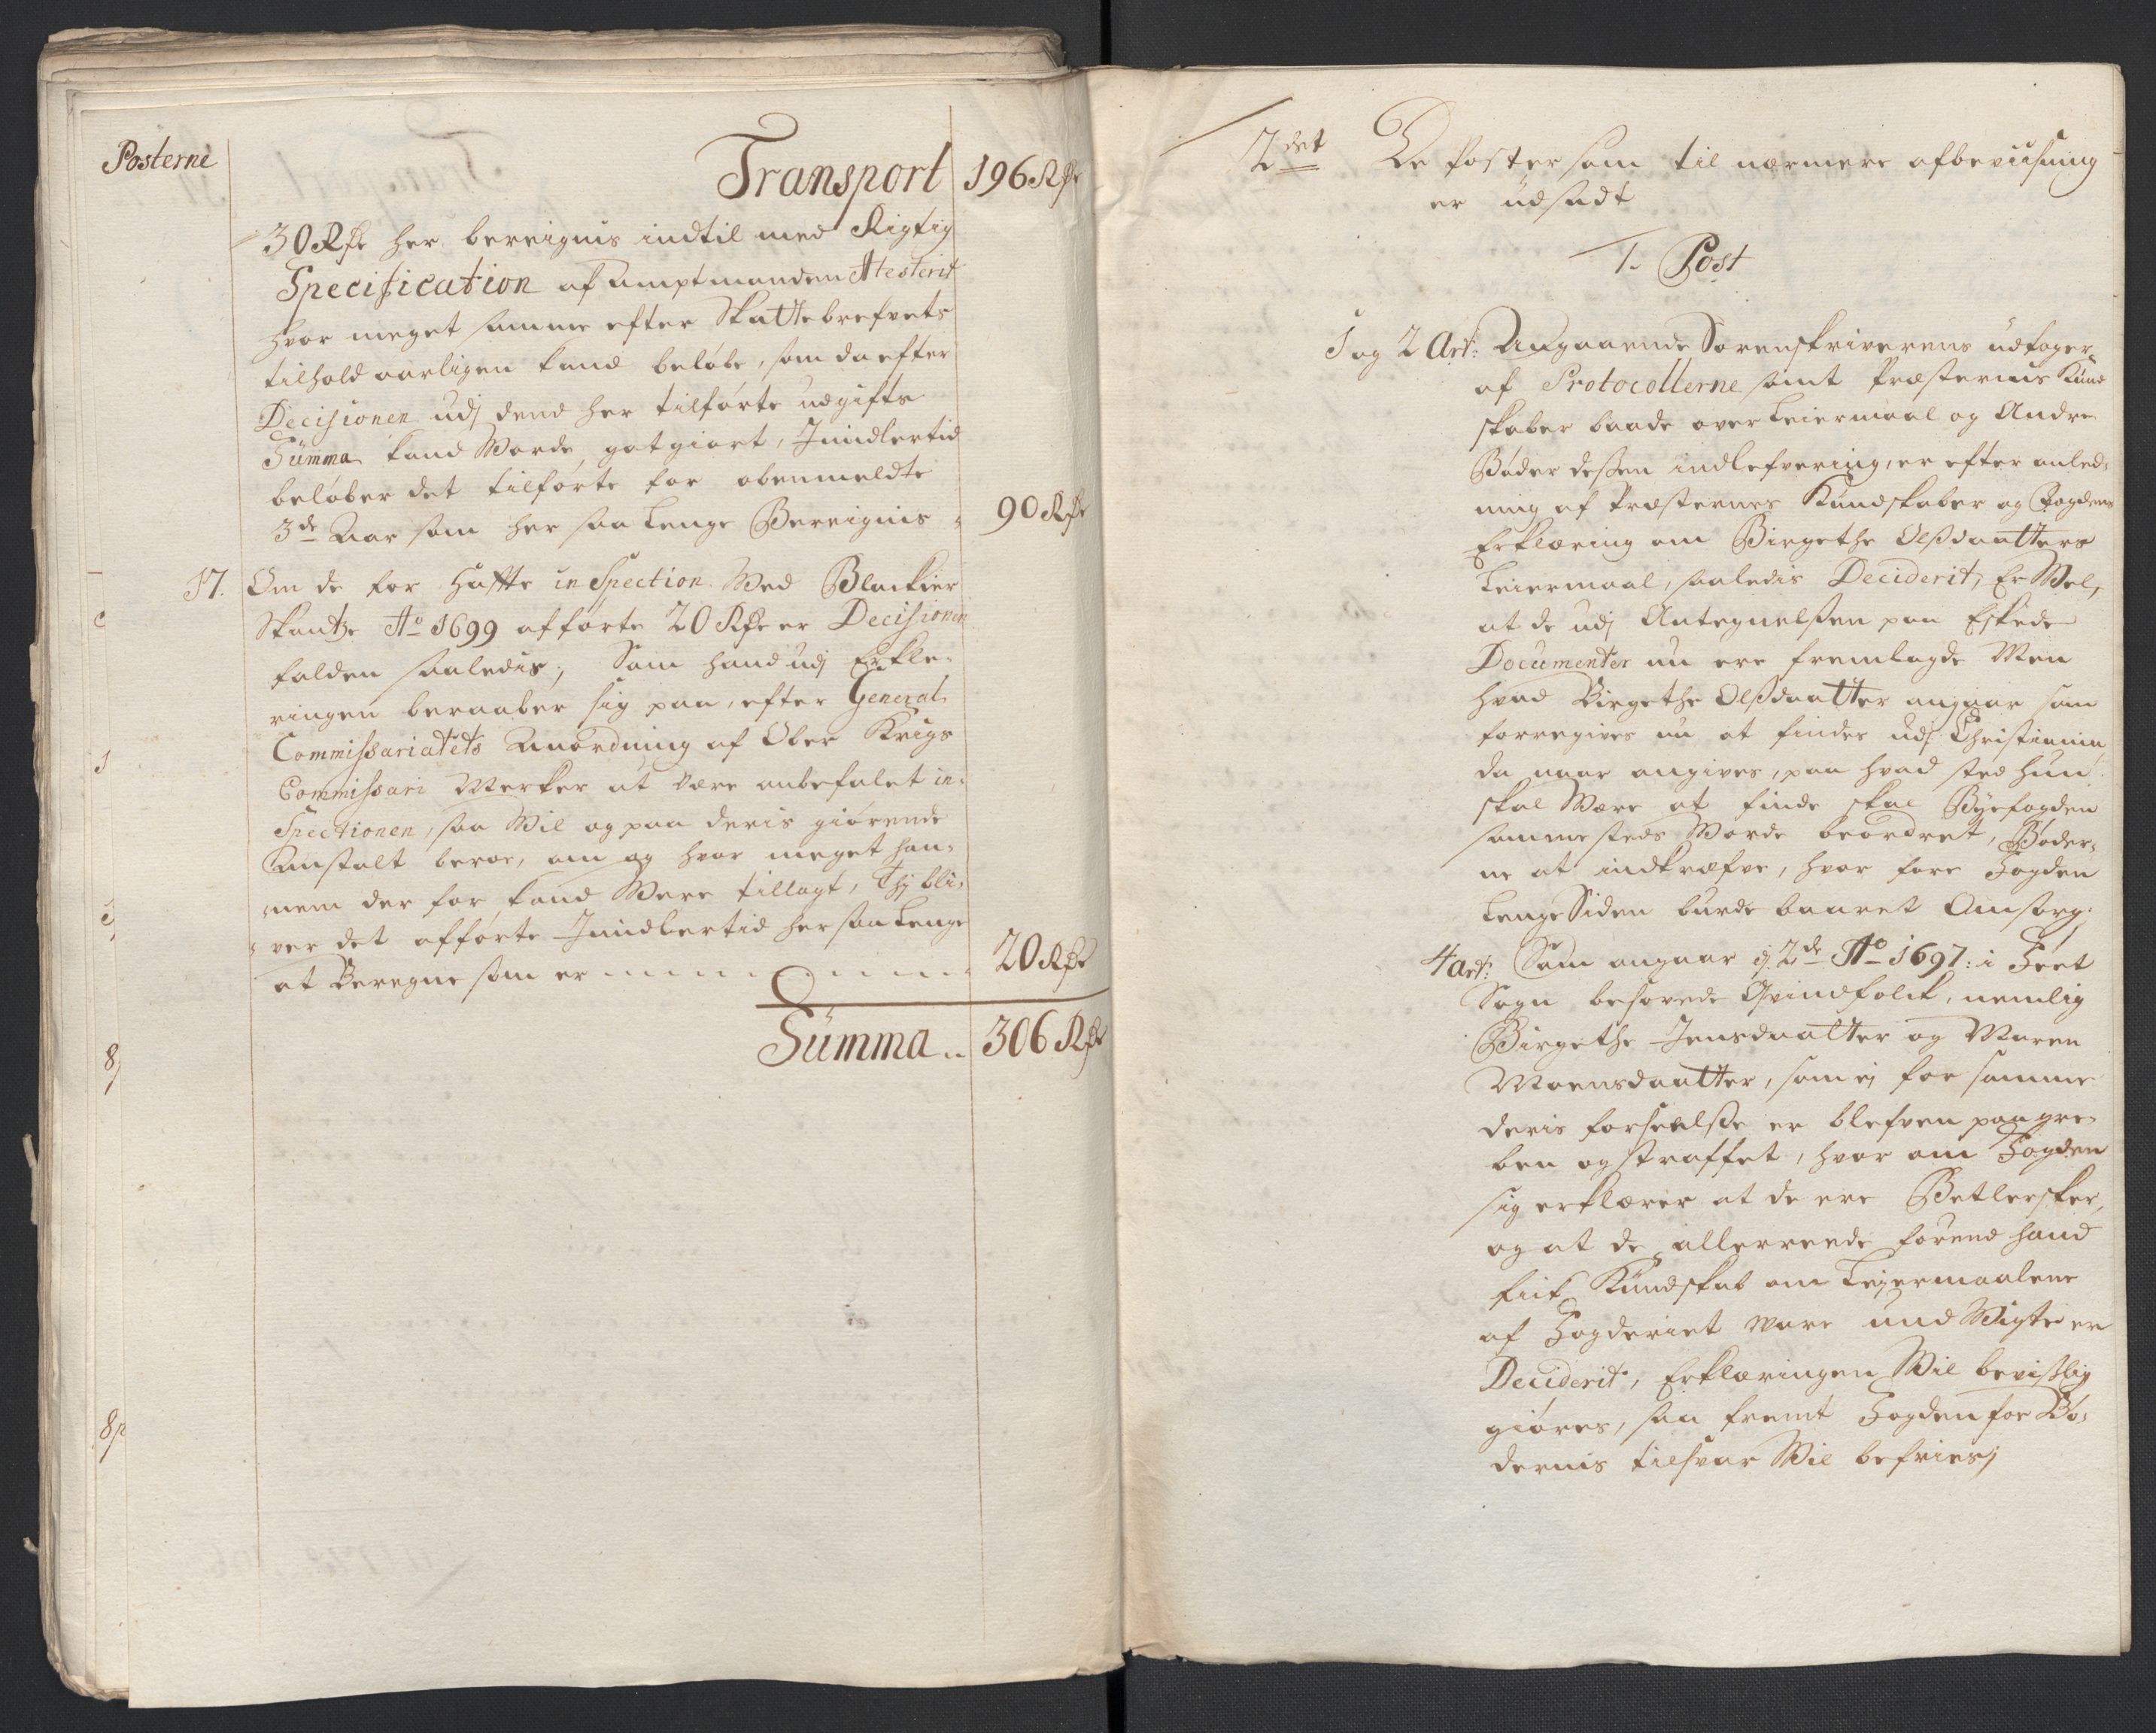 Posterne
Transport 196 Rdr
30 Rdr her bereignis indtil med Rigtig
Specification af Amptmanden Atesterit
hvor meget samme efter Skattebrefvets
tilhold aarligen kand beløbe, som da efter
Decisionen udj dend her tilførte udgifts
Summa kand Worde gotgiort, Imidlertid
beløber det tilførte for obenmeldte
3de Aar som her saa lenge Bereignis 90 Rdr
17. Om de for hafte inspection Wed Blackier
Skantze Ao 1699 afførte 20 Rdr er Decisionen
falden saaledis, Som hand udj Erkle-
ringen beraaber sig paa, efter General
Commissariatets Anordning af Ober Krigs
Commissari Werker at være anbefalet in-
spectionen, saa Wil og paa deris giørende
Anstalt beroe, om og hvor meget han-
nem der for kand Were tillagt, Thj bli-
ver det afførte Imidlertid her saa lenge
at Beregne som er 20 Rdr
Summa 306 Rdr
2det De Poster som til nærmere afbeviisning
er udsadt
1. Post
1 og 2 Art: Angaaende Sorenskriverens udtoger
af Protocollerne samt Præsternis Kund
skaber baade over Leiermaal og Andre
Bøder dessen indlefvering, er efter anled-
ning af Præsternes Kundskaber og Fogdens
Erklæring om Birgethe Olsdaatters
Leiermaal, saaledis Deciderit, Er Wel,
at de udj Antegnelsen paa Eskede
Documenter nu ere fremlagde Men
hvad Birgethe Olsdaatter angaar som
foregives nu at findes udj Christiania
da naar angives, paa hvad sted hun
skal Være at finde skal Byefogden
sammesteds Worde beordret, Bøder-
ne at indkræfve, hvor fore Fogden
lenge Siden burde baaret Omsorg.
4 Art: Som angaar 2de Ao 1697: i Eeet
Sogn besovede Qvindfolk, nemlig
Birgethe Jensdaatter og Maren
Moensdaatter, som ej for samme
deris forseelse er blefven paagre-
ben og straffet, hvor om Fogden
sig erklærer at de ere Betlersker,
og at de allerreede førend hand
fick Kundskab om Leyermaalene
af Fogderiet Ware und Wigte er
Deciderit, Erklæringen Wil bevislig
giøres, saa fremt Fogden for Bø-
dernis tilsvar Wil befries;